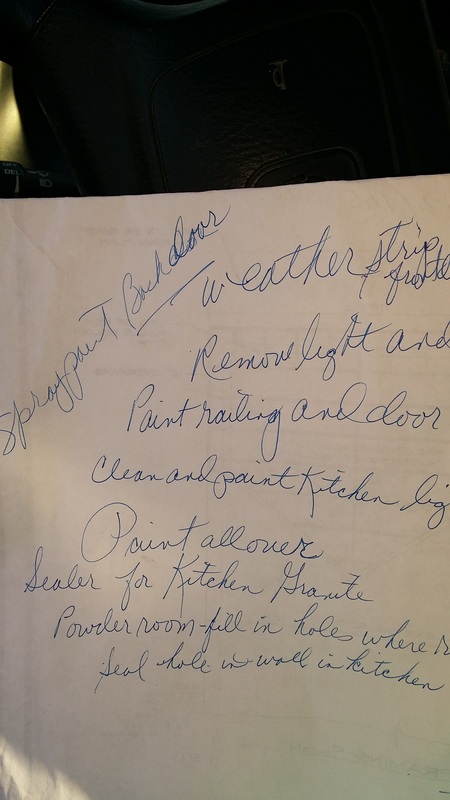 Spray paint Back door
weather strip
front
Remove light and
Paint railing and door
Clean and paint Kitchen lig
Paint all over
Sealer for Kitchen Granite
Powder room-fill in holes where
Seal hole in wall in kitchen